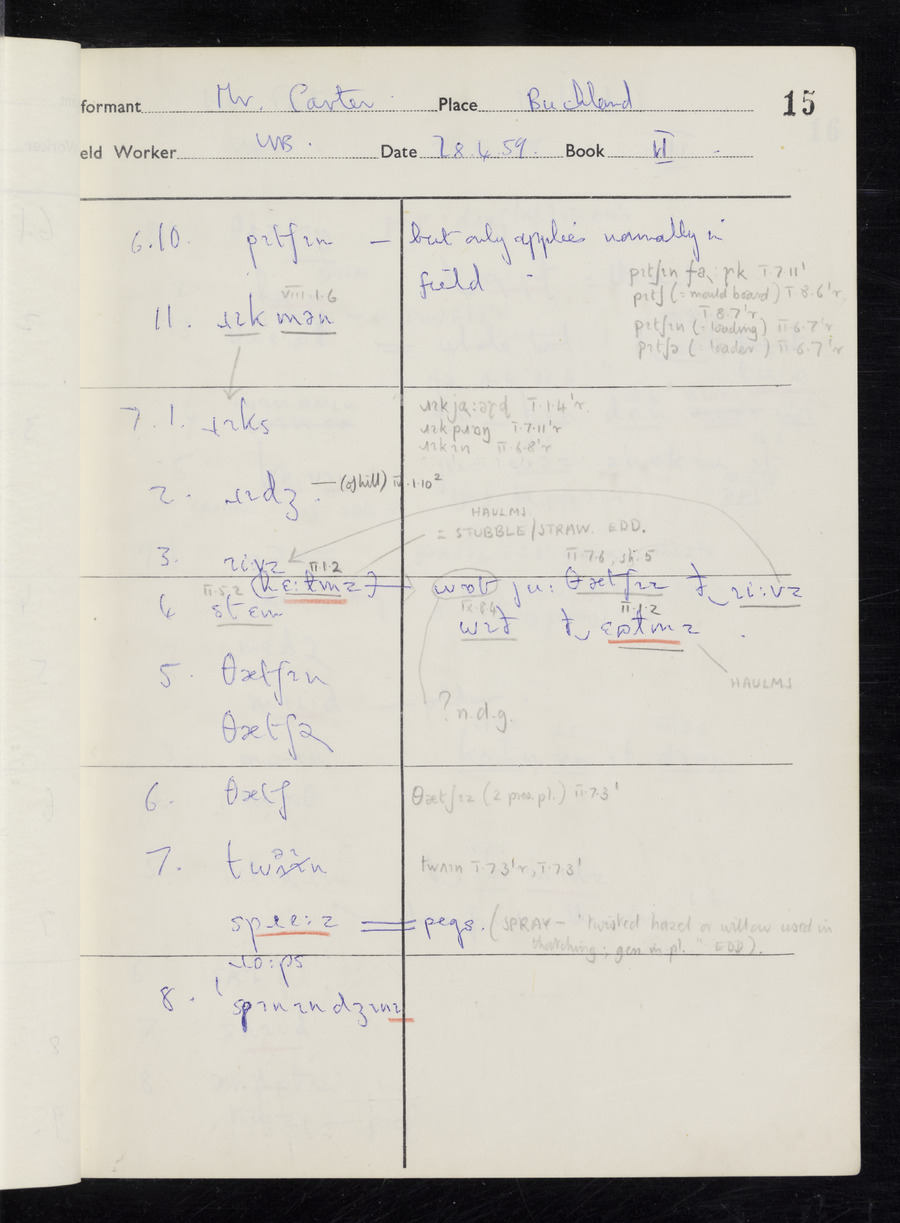 formant Mr. Carter Place Buckland 15
eld Worker WB. Date 28.4.59. Book II
6.10. pɪtʃɪn — but only applies normally in
field
pɪtʃɪn fɑːɽk I.7.11'
VIII.1.6 pɪtʃ (= mould board) I.8.6'r,
I.8.7'r
11. ɹɪk mən pɪtʃɪn (= loading) II.6.7'r
pɪtʃə (= loader) II.6.7'r
7.1. ɹɪks ɹɪkjɑːəɽɖ I.1.4'r.
I.7.11'r
ɹɪkɪn II.6.8'r
2. ɹɪdʒ. — (of hill) IV.1.10²
HAULMS
= STUBBLE/STRAW. EDD.
3. II.1.2 II.7.6, sh.5
wɒt juː θætʃɪz ɪiːvz
II.5.2 II.1.2
4. stɛm wɪð
HAULMS
5. θætʃɪn
θætʃə ? n.d.g.
6. θætʃ θætʃɪz (2 pres. pl.) II.7.3'
7. twʌɪn I.7.3'r, I.7.3'
pegs. (SPRAY — "twisted hazel or willow used in
thatching; gen in pl." EDD).
ɹoːps
8. 'spɪnɪndʒɪnz